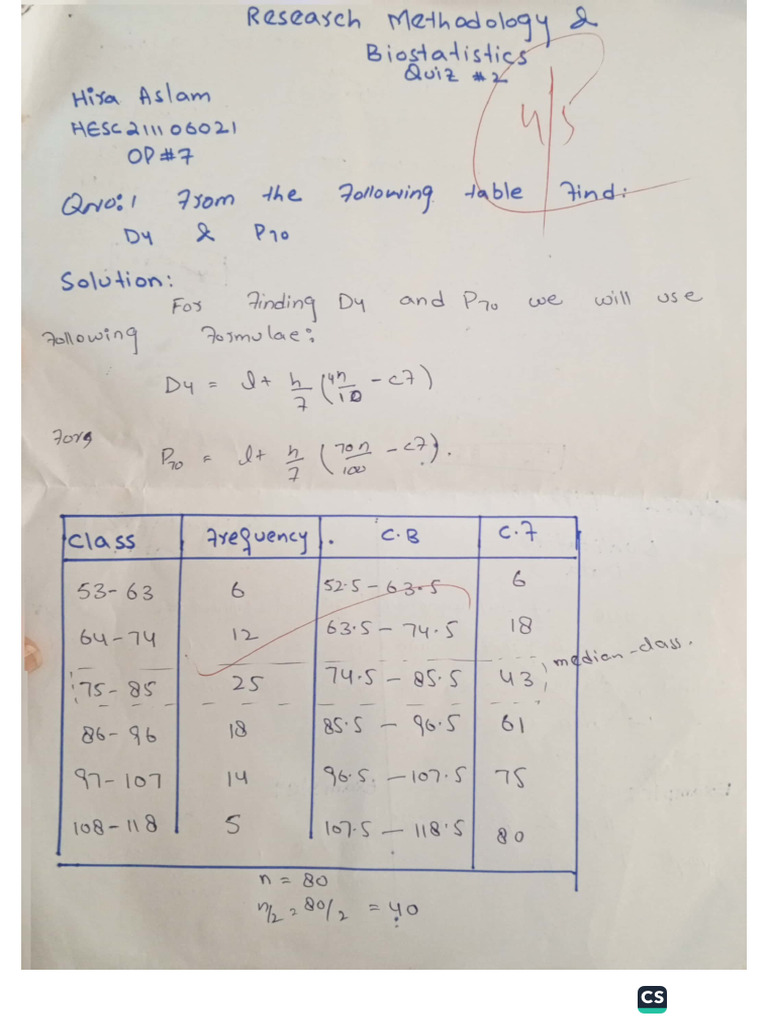 Research Methodology &
Biostatistics
Quiz #2
4/5
Hira Aslam
HESC211106021
OP#7
Qno:1 From the Following table Find:
D4 & P70
Solution:
For Finding D4 and P70 we will use
Following Formulae:
D4 = l + h/f (4n/10 - cf)
P70 = l + h/f (70n/100 - cf).
Class Frequency C.B C.F
53-63 6 52.5-63.5 6
64-74 12 63.5-74.5 18
75-85 25 74.5-85.5 43 median-class.
86-96 18 85.5-96.5 61
97-107 14 96.5-107.5 75
108-118 5 107.5-118.5 80
n = 80
n/2 = 80/2 = 40
CS